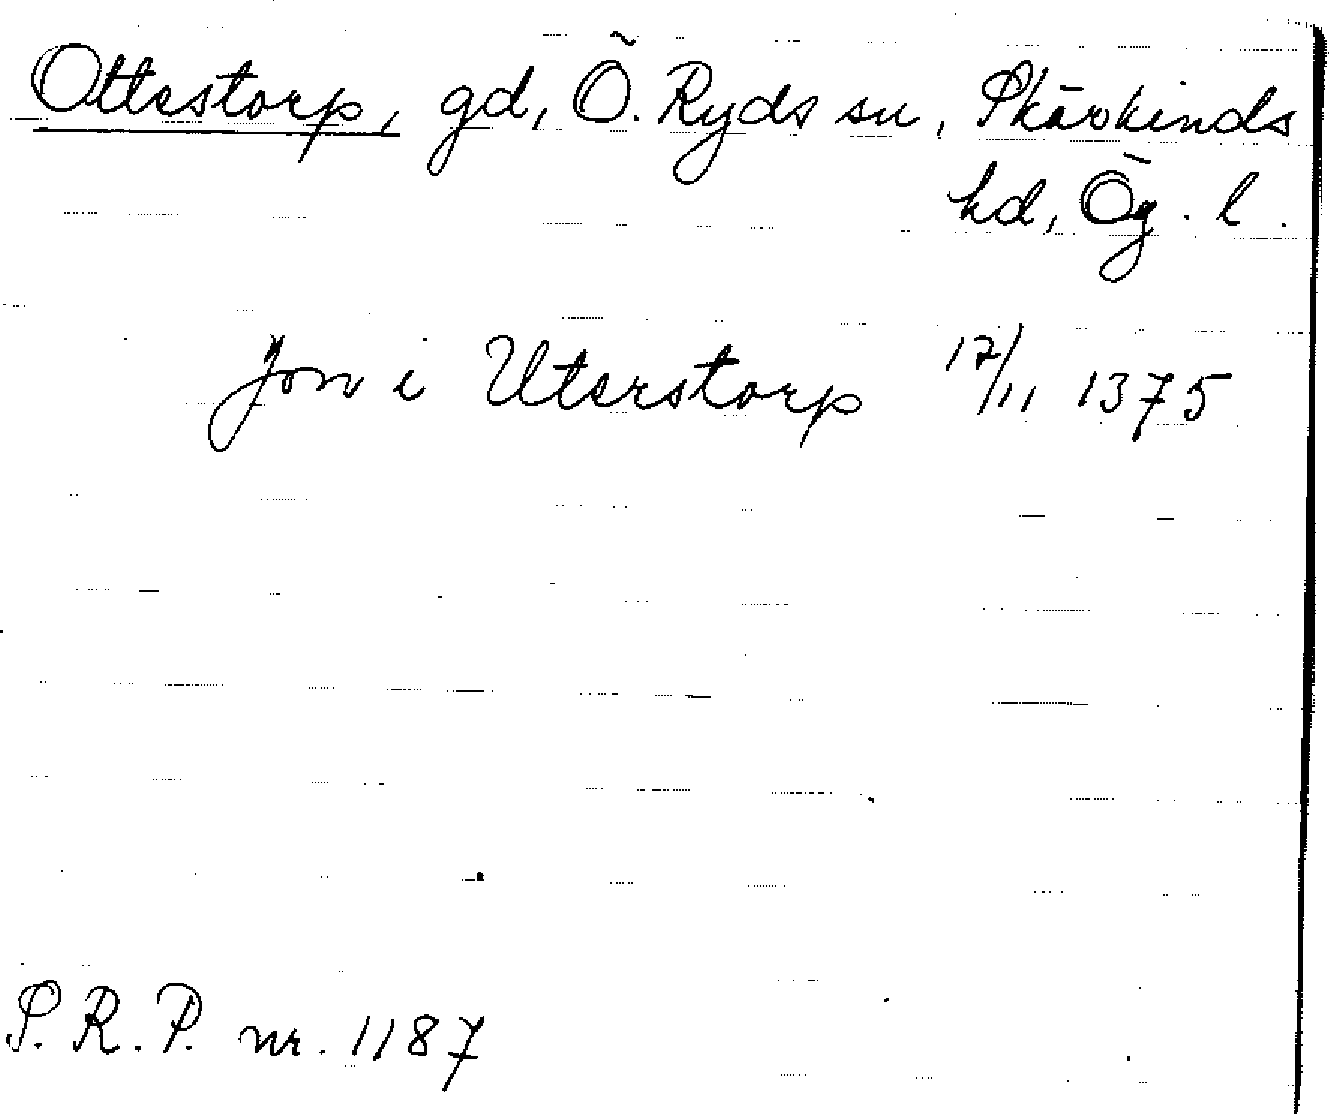 Ottestorp, gd, Ö. Ryds sn, Skärkinds
hd, Ög. l.
Jon i Uterstorp 17/11 1375
S. R. P. nr. 1187